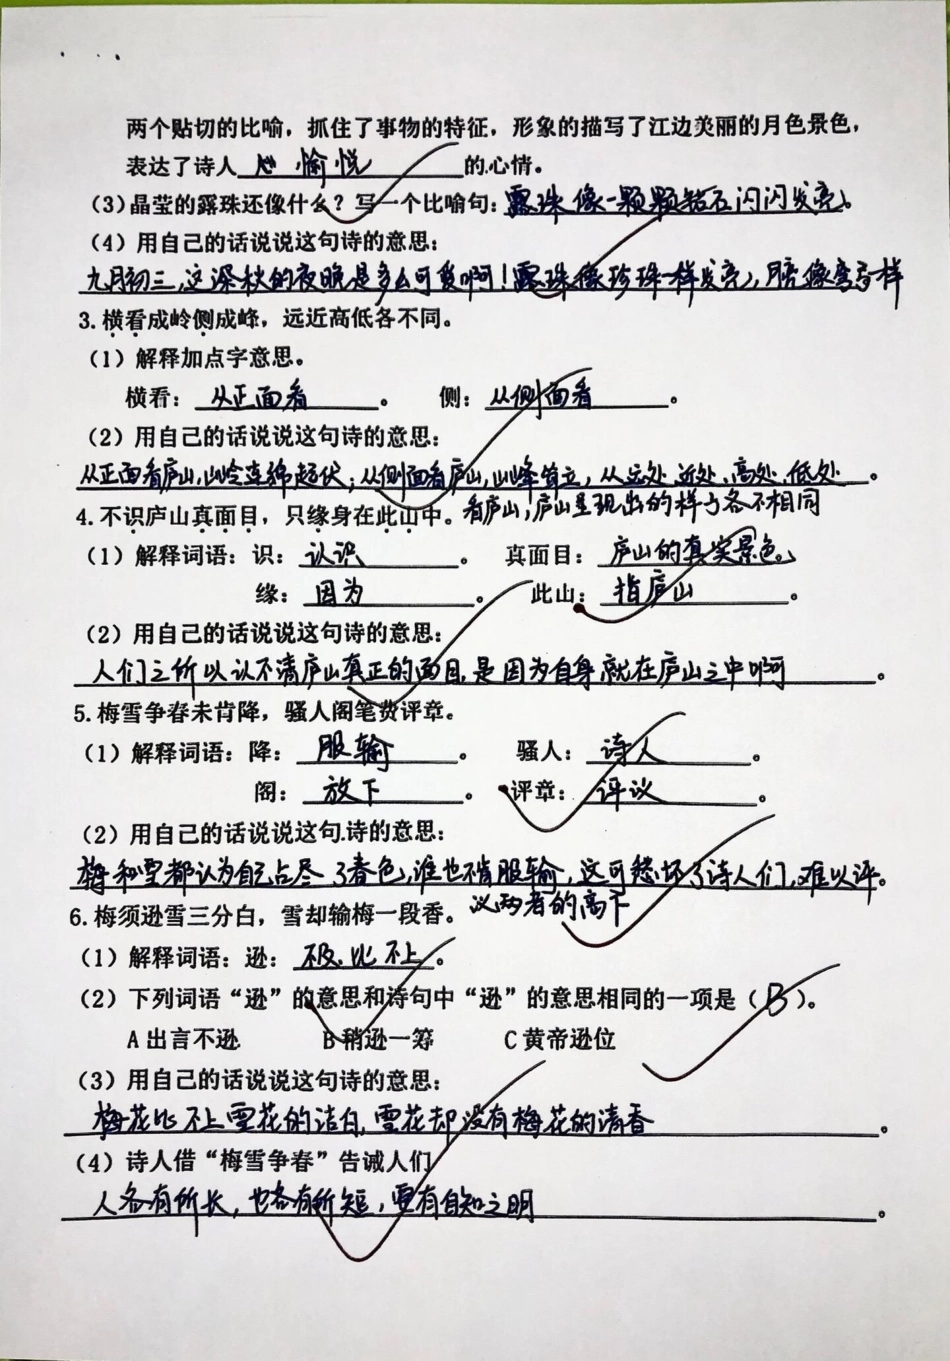 两个贴切的比喻，抓住了事物的特征，形象的描写了江边美丽的月色景色，
表达了诗人 愉悦 的心情。
(3)晶莹的露珠还像什么？写一个比喻句：露珠像一颗颗钻石闪闪发亮。
(4)用自己的话说说这句诗的意思：
九月初三,这深秋的夜晚是多么可爱啊！露珠像珍珠一样发亮,月 像弯弓样
3.横看成岭侧成峰，远近高低各不同。
(1)解释加点字意思。
横看：从正面看。 侧：从侧面看。
(2)用自己的话说说这句诗的意思：
从正面看庐山,山岭连绵起伏；从侧面看庐山,山峰耸立，从远处、近处、高处、低处。
看庐山,庐山呈现出的样子各不相同
4.不识庐山真面目，只缘身在此山中。
(1)解释词语：识：认识。 真面目：庐山的真实景色。
缘：因为。 此山：指庐山。
(2)用自己的话说说这句诗的意思：
人们之所以认不清庐山真正的面目,是因为自身就在庐山之中啊。
5.梅雪争春未肯降，骚人阁笔费评章。
(1)解释词语：降：服输。 骚人：诗人。
阁：放下。 评章：评议。
(2)用自己的话说说这句诗的意思：
梅和雪都认为自己占尽了春色,谁也不肯服输，这可愁坏了诗人们,难以评。
议两者的高下
6.梅须逊雪三分白，雪却输梅一段香。
(1)解释词语：逊：不及.比不上。
(2)下列词语“逊”的意思和诗句中“逊”的意思相同的一项是（B）。
A出言不逊 B稍逊一筹 C黄帝逊位
(3)用自己的话说说这句诗的意思：
梅花比不上雪花的洁白,雪花却没有梅花的清香。
(4)诗人借“梅雪争春”告诫人们
人各有所长，也各有所短，要有自知之明。